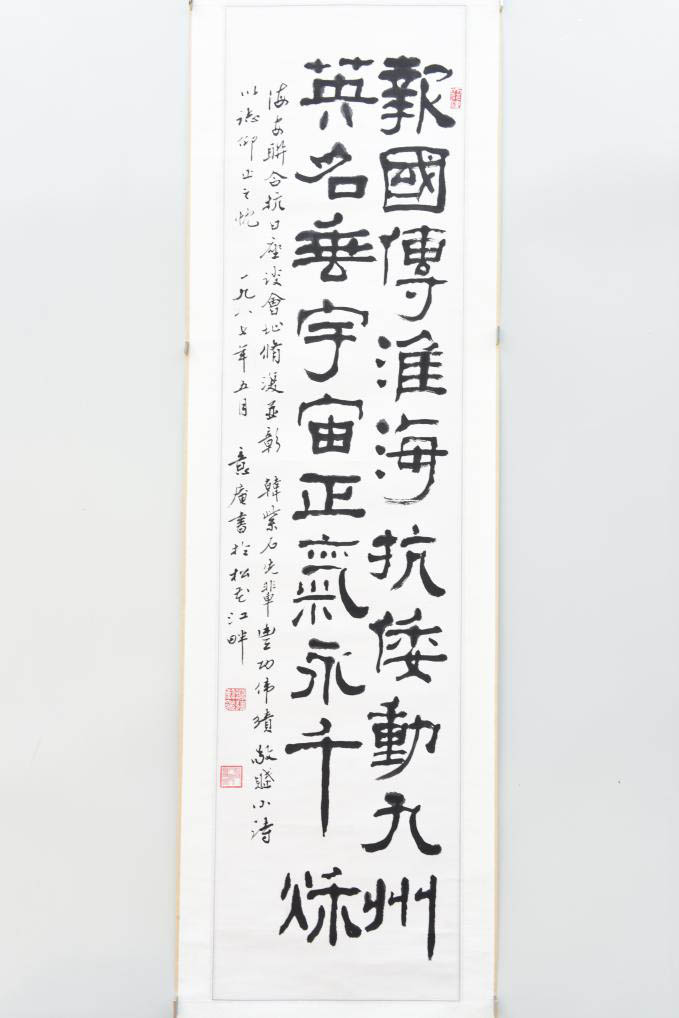 報國傳淮海抗倭動九州
英名垂宇宙正氣永千秌
海安聯合抗日座談會址脩復並彰 韓紫石先輩豐功伟績敬賦小詩
以誌仰止之忱 一九八七年五月 意庵書於松花江畔